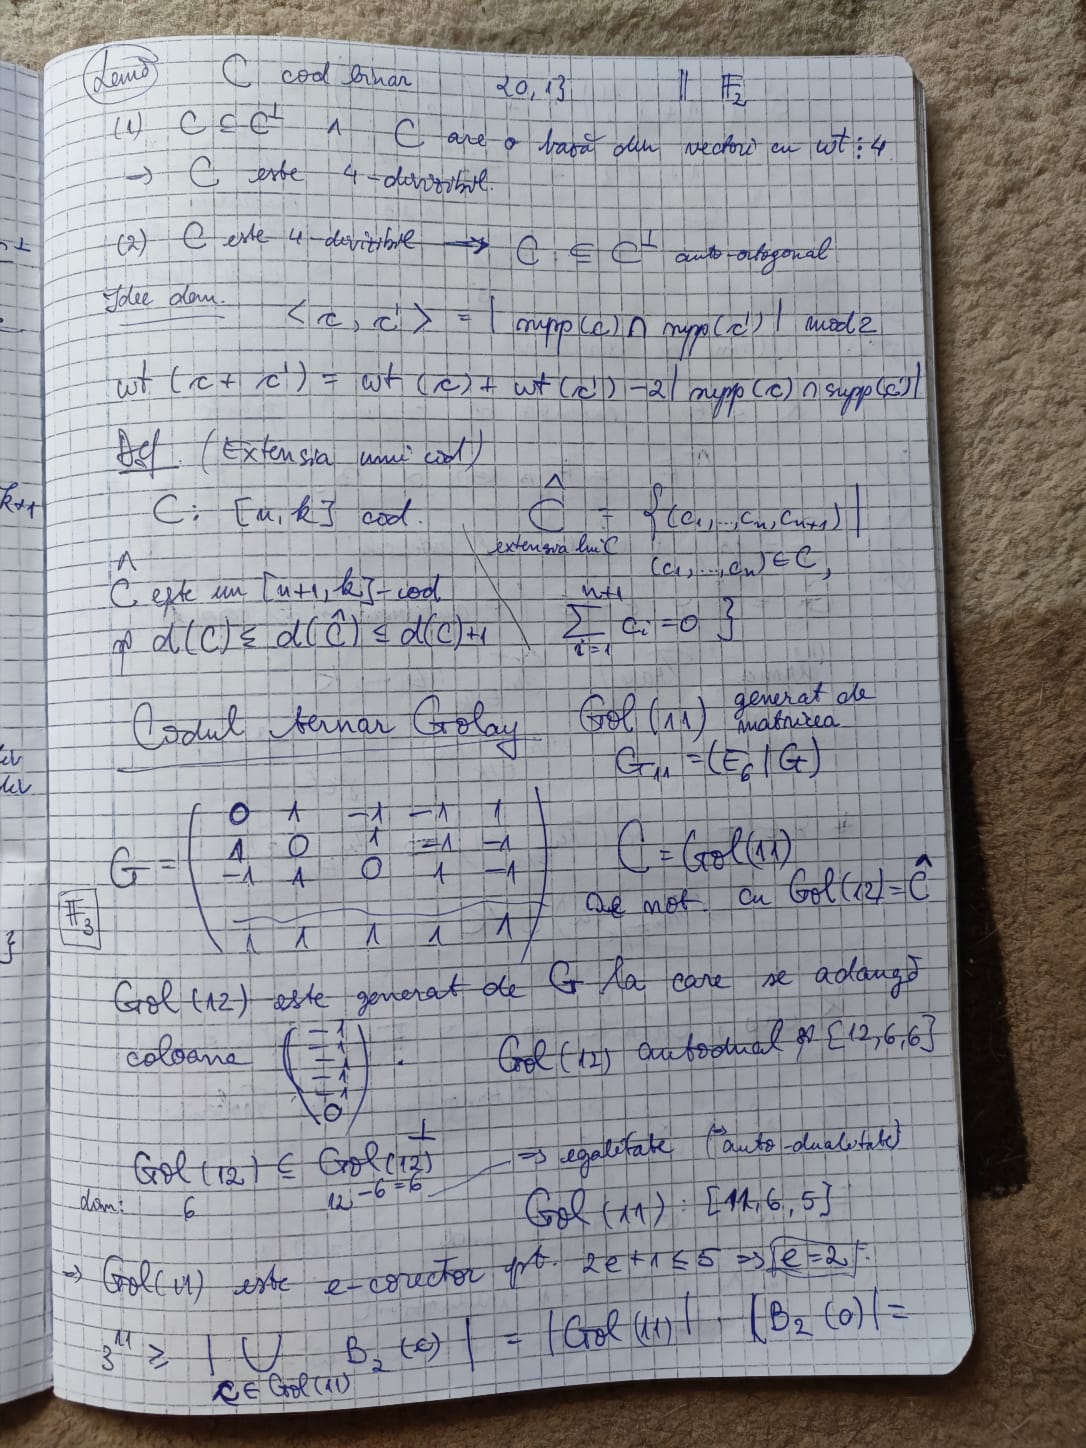 Lemă C cod binar 20,13 || F₂
(1) C ⊆ C^⊥ ∧ C are o bază din vectori cu wt ⋮ 4
→ C este 4-divizibil.
(2) C este 4-divizibil → C ⊆ C^⊥ auto-ortogonal
Idee dem. <c, c'> = | supp(c) ∩ supp(c') | mod 2
wt (c + c') = wt (c) + wt (c') - 2| supp(c) ∩ supp(c')|
Def. (Extensia unui cod)
C: [n, k] cod. Ĉ = {(c₁,...,cₙ,cₙ₊₁) |
extensia lui C (c₁,...,cₙ) ∈ C,
Ĉ este un [n+1, k]-cod
și d(C) ≤ d(Ĉ) ≤ d(C)+1 ∑_{i=1}^{n+1} cᵢ = 0 }
Codul ternar Golay Gol(11) generat de
matricea
G₁₁ = (E₆ | G)
G = ( 0 1 -1 -1 1
1 0 1 -1 -1
-1 1 0 1 -1
1 1 1 1 1 )
F₃
C = Gol(11)
se not. cu Gol(12) = Ĉ
Gol(12) este generat de G la care se adaugă
coloana ( -1 -1 -1 -1 -1 0 ) . Gol(12) autodual și [12,6,6]
Gol(12) ⊆ Gol(12)^⊥ ⇒ egalitate (⇒ auto-dualitate)
dim: 6 12-6=6
Gol(11) : [11, 6, 5]
⇒ Gol(11) este e-corector pt. 2e+1 ≤ 5 ⇒ e=2
3¹¹ ≥ | ∪ B₂(c) | = |Gol(11)| · |B₂(0)| =
c ∈ Gol(11)
k+1